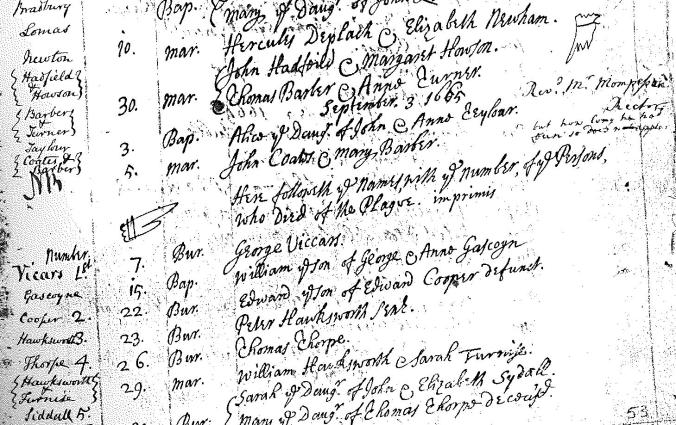 Bradbury Bap. Mary yᵉ Daugʳ of John
Lomas
Newton 10. mar. Hercules Deplach & Elizabeth Newham.
Hadfield & Howson John Hadfeild & Margaret Howson.
Barber & Turner 30. mar. Thomas Barber & Anne Turner.
September. 3 1665
Taylour 3. Bap. Alice yᵉ Daugʳ of John & Anne Teylour.
Coates & Barber 5. mar. John Coats & Mary Barber.
Revᵈ Mʳ Mompesson
Rector
but how long he had
been so does not appear.
NB
Here followeth yᵉ Names, with yᵉ number, of yᵉ Persons,
who Died of the Plague. imprimis
Number
Vicars 1st 7. Bur. George Viccars.
Gascoyne 15. Bap. William yᵉ son of George & Anne Gascoyn
Cooper 2. 22. Bur. Edward yᵉ son of Edward Cooper defunct.
Hawksworth 3. 23. Bur. Peter Hawksworth Senr.
Thorpe 4. 26. Bur. Thomas Thorpe.
Hawksworth & Furnise 29. mar. William Hawksworth & Sarah Furnise.
Siddall 5. Sarah yᵉ Daugʳ of John & Elizabeth Sydall.
Bur. Mary yᵉ Daugʳ of Thomas Thorpe deceas'd.
53